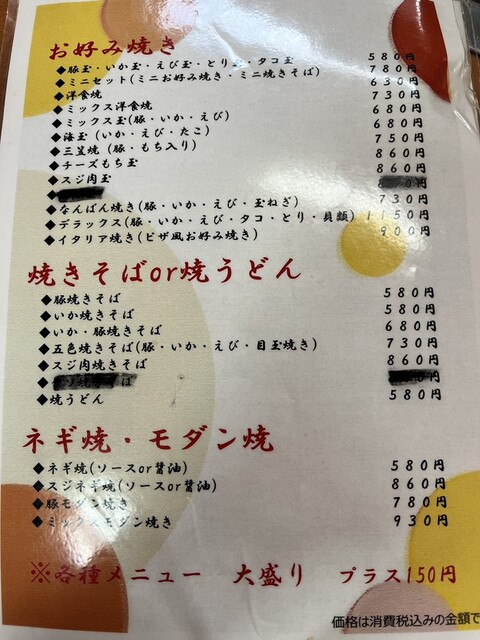 お好み焼き
◆豚玉・いか玉・えび玉・とり玉・タコ玉 580円
◆ミニセット(ミニお好み焼き・ミニ焼きそば) 780円
◆洋食焼 630円
◆ミックス洋食焼 730円
◆ミックス玉(豚・いか・えび) 680円
◆海玉(いか・えび・たこ) 680円
◆三笠焼(豚・もち入り) 750円
◆チーズもち玉 860円
◆スジ肉玉 860円
◆ 円
◆なんばん焼き(豚・いか・えび・玉ねぎ) 730円
◆デラックス(豚・いか・えび・タコ・とり・貝類) 1150円
◆イタリア焼き(ピザ風お好み焼き) 900円
焼きそばor焼うどん
◆豚焼きそば 580円
◆いか焼きそば 580円
◆いか・豚焼きそば 680円
◆五色焼きそば(豚・いか・えび・目玉焼き) 730円
◆スジ肉焼きそば 860円
◆ 焼きそば 円
◆焼うどん 580円
ネギ焼・モダン焼
◆ネギ焼(ソースor醤油) 580円
◆スジネギ焼(ソースor醤油) 860円
◆豚モダン焼き 780円
◆ミックスモダン焼き 930円
※各種メニュー 大盛り プラス150円
価格は消費税込みの金額で